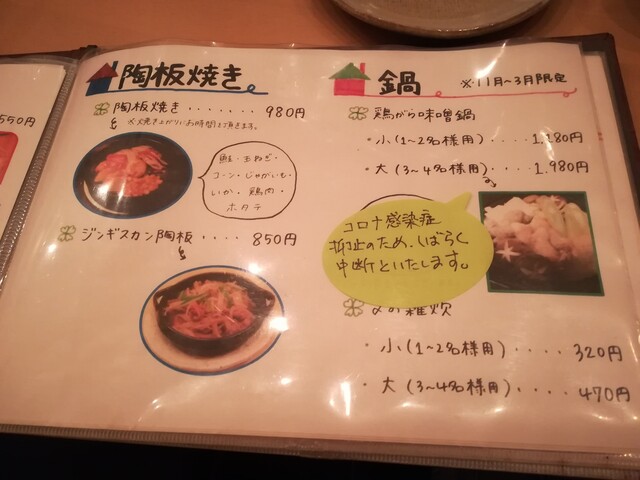 550円
陶板焼き
陶板焼き・・・・・・・980円
※焼き上がりにお時間を頂きます。
鮭・玉ねぎ・
コーン・じゃがいも・
いか・鶏肉・
ホタテ
ジンギスカン陶板・・・・850円
鍋 ※11月〜3月限定
鶏がら味噌鍋
・小(1〜2名様用)・・・1.180円
・大(3〜4名様用)・・・1.980円
コロナ感染症
抑止のため、しばらく
中断といたします。
〆の雑炊
・小(1〜2名様用)・・・・320円
・大(3〜4名様用)・・・・470円